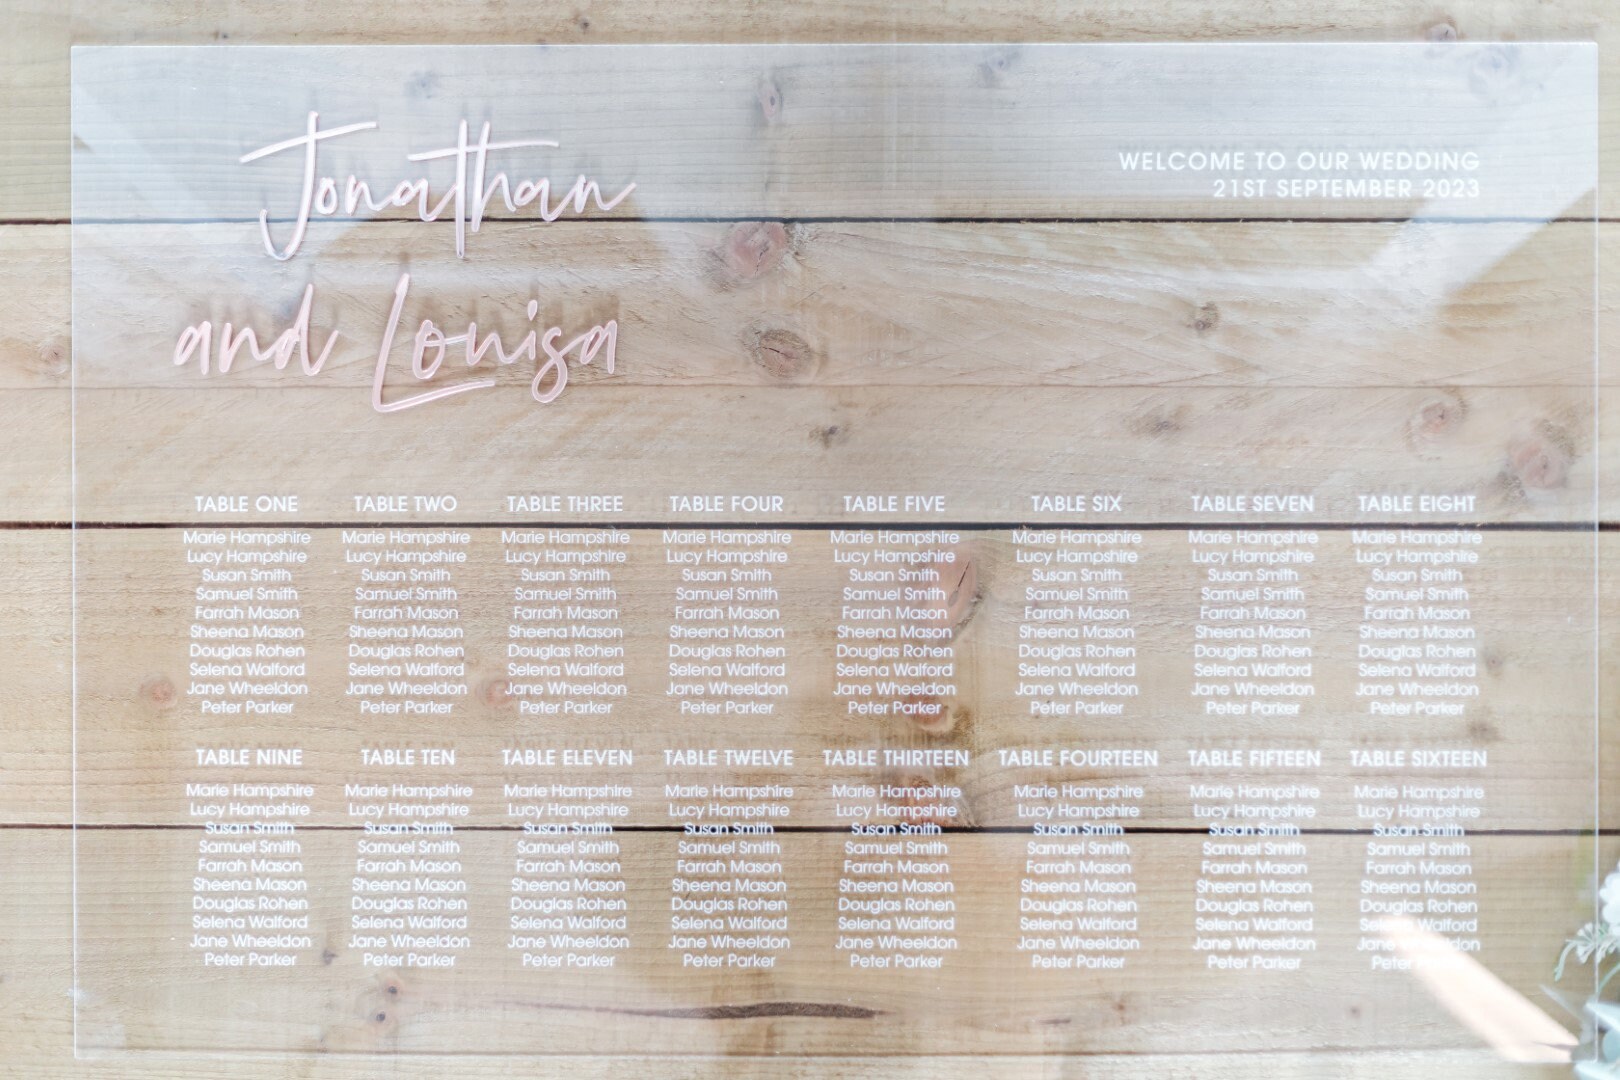 Jonathan
and Louisa
WELCOME TO OUR WEDDING
21ST SEPTEMBER 2023
TABLE ONE
Marie Hampshire
Lucy Hampshire
Susan Smith
Samuel Smith
Farrah Mason
Sheena Mason
Douglas Rohen
Selena Walford
Jane Wheeldon
Peter Parker
TABLE TWO
Marie Hampshire
Lucy Hampshire
Susan Smith
Samuel Smith
Farrah Mason
Sheena Mason
Douglas Rohen
Selena Walford
Jane Wheeldon
Peter Parker
TABLE THREE
Marie Hampshire
Lucy Hampshire
Susan Smith
Samuel Smith
Farrah Mason
Sheena Mason
Douglas Rohen
Selena Walford
Jane Wheeldon
Peter Parker
TABLE FOUR
Marie Hampshire
Lucy Hampshire
Susan Smith
Samuel Smith
Farrah Mason
Sheena Mason
Douglas Rohen
Selena Walford
Jane Wheeldon
Peter Parker
TABLE FIVE
Marie Hampshire
Lucy Hampshire
Susan Smith
Samuel Smith
Farrah Mason
Sheena Mason
Douglas Rohen
Selena Walford
Jane Wheeldon
Peter Parker
TABLE SIX
Marie Hampshire
Lucy Hampshire
Susan Smith
Samuel Smith
Farrah Mason
Sheena Mason
Douglas Rohen
Selena Walford
Jane Wheeldon
Peter Parker
TABLE SEVEN
Marie Hampshire
Lucy Hampshire
Susan Smith
Samuel Smith
Farrah Mason
Sheena Mason
Douglas Rohen
Selena Walford
Jane Wheeldon
Peter Parker
TABLE EIGHT
Marie Hampshire
Lucy Hampshire
Susan Smith
Samuel Smith
Farrah Mason
Sheena Mason
Douglas Rohen
Selena Walford
Jane Wheeldon
Peter Parker
TABLE NINE
Marie Hampshire
Lucy Hampshire
Susan Smith
Samuel Smith
Farrah Mason
Sheena Mason
Douglas Rohen
Selena Walford
Jane Wheeldon
Peter Parker
TABLE TEN
Marie Hampshire
Lucy Hampshire
Susan Smith
Samuel Smith
Farrah Mason
Sheena Mason
Douglas Rohen
Selena Walford
Jane Wheeldon
Peter Parker
TABLE ELEVEN
Marie Hampshire
Lucy Hampshire
Susan Smith
Samuel Smith
Farrah Mason
Sheena Mason
Douglas Rohen
Selena Walford
Jane Wheeldon
Peter Parker
TABLE TWELVE
Marie Hampshire
Lucy Hampshire
Susan Smith
Samuel Smith
Farrah Mason
Sheena Mason
Douglas Rohen
Selena Walford
Jane Wheeldon
Peter Parker
TABLE THIRTEEN
Marie Hampshire
Lucy Hampshire
Susan Smith
Samuel Smith
Farrah Mason
Sheena Mason
Douglas Rohen
Selena Walford
Jane Wheeldon
Peter Parker
TABLE FOURTEEN
Marie Hampshire
Lucy Hampshire
Susan Smith
Samuel Smith
Farrah Mason
Sheena Mason
Douglas Rohen
Selena Walford
Jane Wheeldon
Peter Parker
TABLE FIFTEEN
Marie Hampshire
Lucy Hampshire
Susan Smith
Samuel Smith
Farrah Mason
Sheena Mason
Douglas Rohen
Selena Walford
Jane Wheeldon
Peter Parker
TABLE SIXTEEN
Marie Hampshire
Lucy Hampshire
Susan Smith
Samuel Smith
Farrah Mason
Sheena Mason
Douglas Rohen
Selena Walford
Jane Wheeldon
Peter Parker